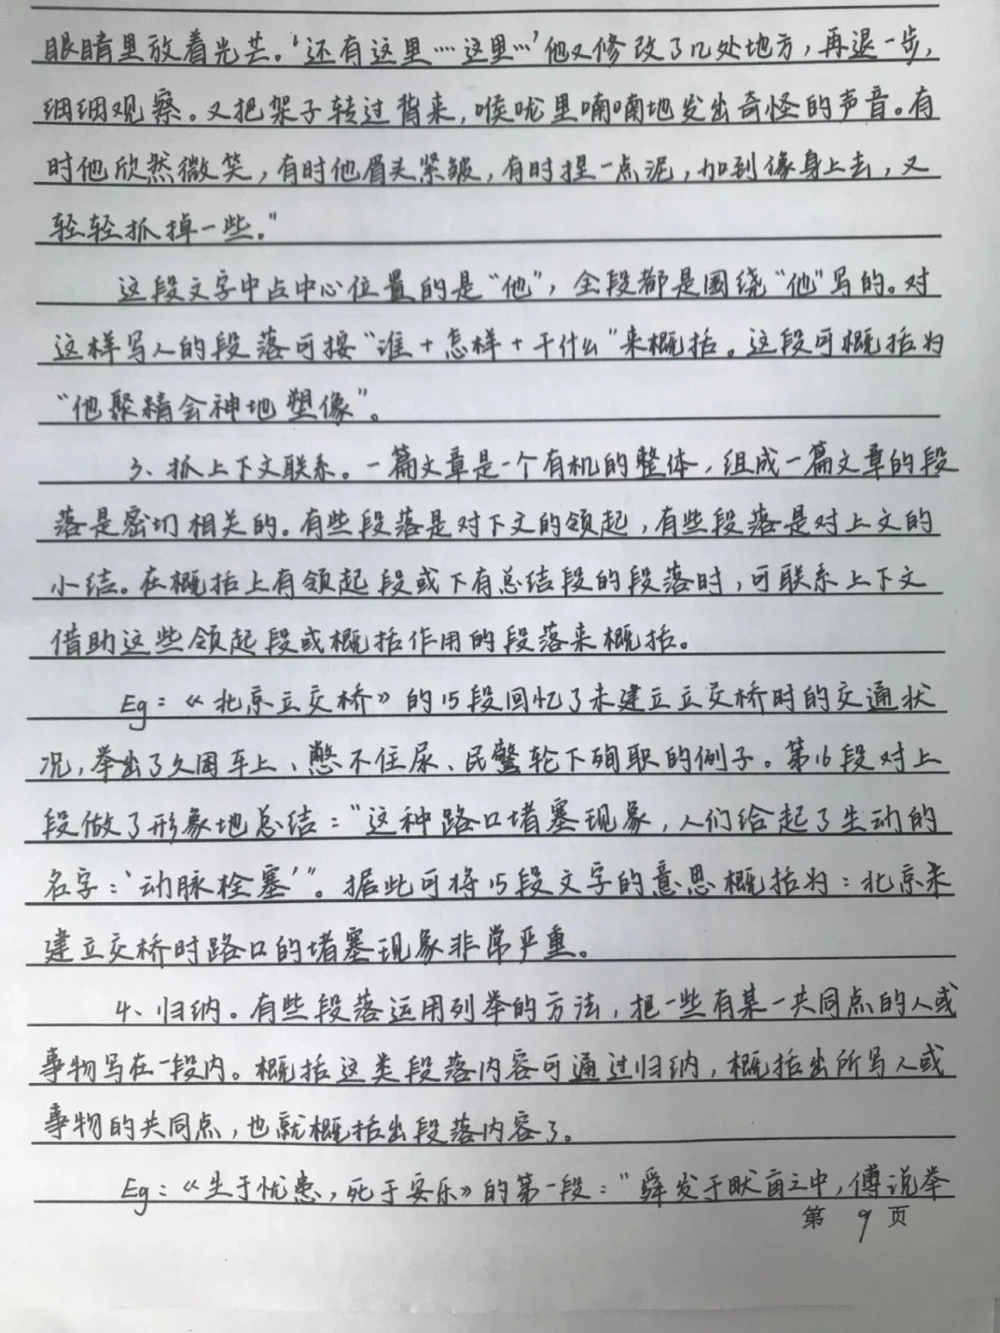 眼睛里放着光芒。'还有这里……这里…'他又修改了几处地方，再退一步，
细细观察。又把架子转过背来，喉咙里喃喃地发出奇怪的声音。有
时他欣然微笑，有时他眉头紧皱，有时捏一点泥，加到像身上去，又
轻轻抓掉一些。"
这段文字中占中心位置的是"他"，全段都是围绕"他"写的。对
这样写人的段落可按"谁+怎样+干什么"来概括。这段可概括为
"他聚精会神地塑像"。
3、抓上下文联系。一篇文章是一个有机的整体，组成一篇文章的段
落是密切相关的。有些段落是对下文的领起，有些段落是对上文的
小结。在概括上有领起段或下有总结段的段落时，可联系上下文
借助这些领起段或概括作用的段落来概括。
Eg：《北京立交桥》的15段回忆了未建立立交桥时的交通状
况，举出了久困车上、憋不住尿、民警轮下殉职的例子。第16段对上
段做了形象地总结："这种路口堵塞现象，人们给起了生动的
名字：'动脉栓塞'"。据此可将15段文字的意思概括为：北京未
建立交桥时路口的堵塞现象非常严重。
4、归纳。有些段落运用列举的方法，把一些有某一共同点的人或
事物写在一段内。概括这类段落内容可通过归纳，概括出所写人或
事物的共同点，也就概括出段落内容了。
Eg：《生于忧患，死于安乐》的第一段："舜发于畎亩之中，傅说举
第 9 页